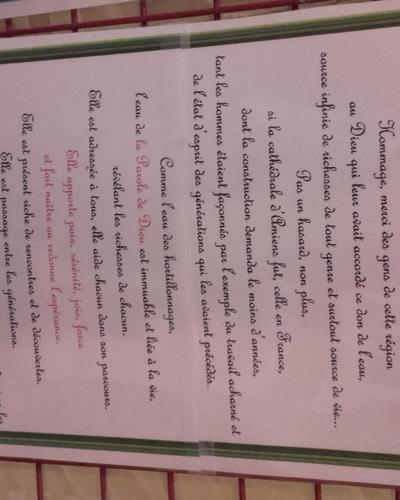 Hommage, merci des gens de cette région
au Dieu qui leur avait accordé ce don de l'eau,
source infinie de richesses de tout genre et surtout source de vie...
Pas un hasard, non plus,
si la cathédrale d'Amiens fut, celle en France,
dont la construction demanda le moins d'années,
tant les hommes étaient façonnés par l'exemple du travail acharné et
de l'état d'esprit des générations qui les avaient précédés.
Comme l'eau des hortillonnages,
l'eau de la Parole de Dieu est immuable et liée à la vie,
révélant les richesses de chacun.
Elle est adressée à tous, elle aide chacun dans son parcours.
Elle apporte paix, sérénité, joie, force
et fait naître ou redonne l'espérance.
Elle est présent riche de rencontres et de découvertes.
Elle est passage entre les générations.